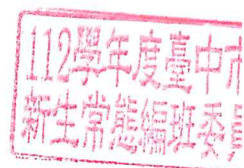 112學年度臺中市
新生常態編班委